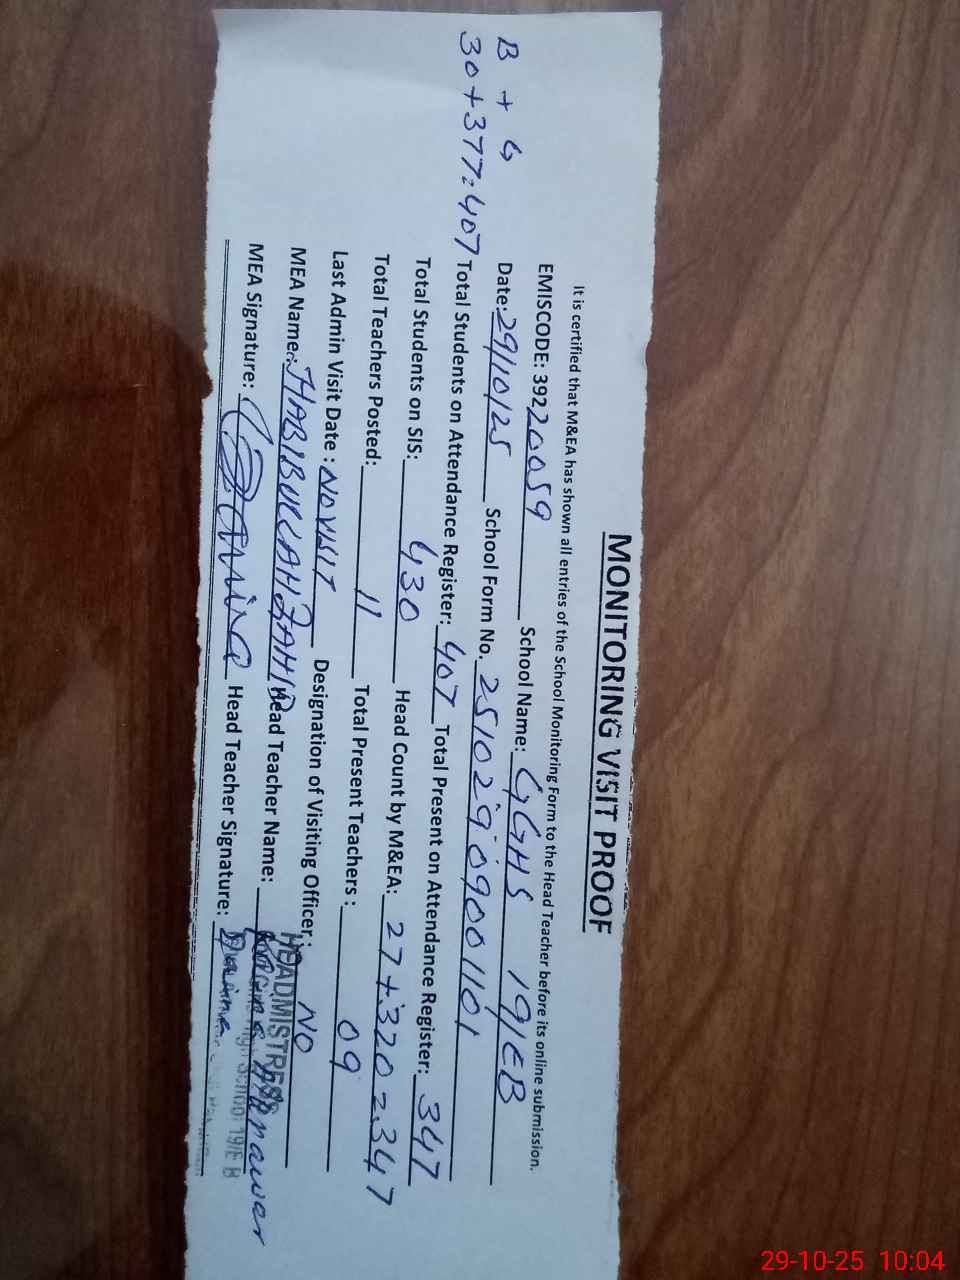 MONITORING VISIT PROOF
It is certified that M&EA has shown all entries of the School Monitoring Form to the Head Teacher before its online submission.
EMISCODE: 39220059 School Name: GGHS 19/EB
Date: 29/10/25 School Form No. 25102909001101
B + G
30+377=407 Total Students on Attendance Register: 407 Total Present on Attendance Register: 347
Total Students on SIS: 430 Head Count by M&EA: 27+320=347
Total Teachers Posted: 11 Total Present Teachers : 09
Last Admin Visit Date : NOVISIT Designation of Visiting Officer: NO
MEA Name: HABIBULLAH ZAHID Head Teacher Name: Munawar
MEA Signature: Head Teacher Signature:
HEADMISTRESS
High School 19/E B
29-10-25 10:04